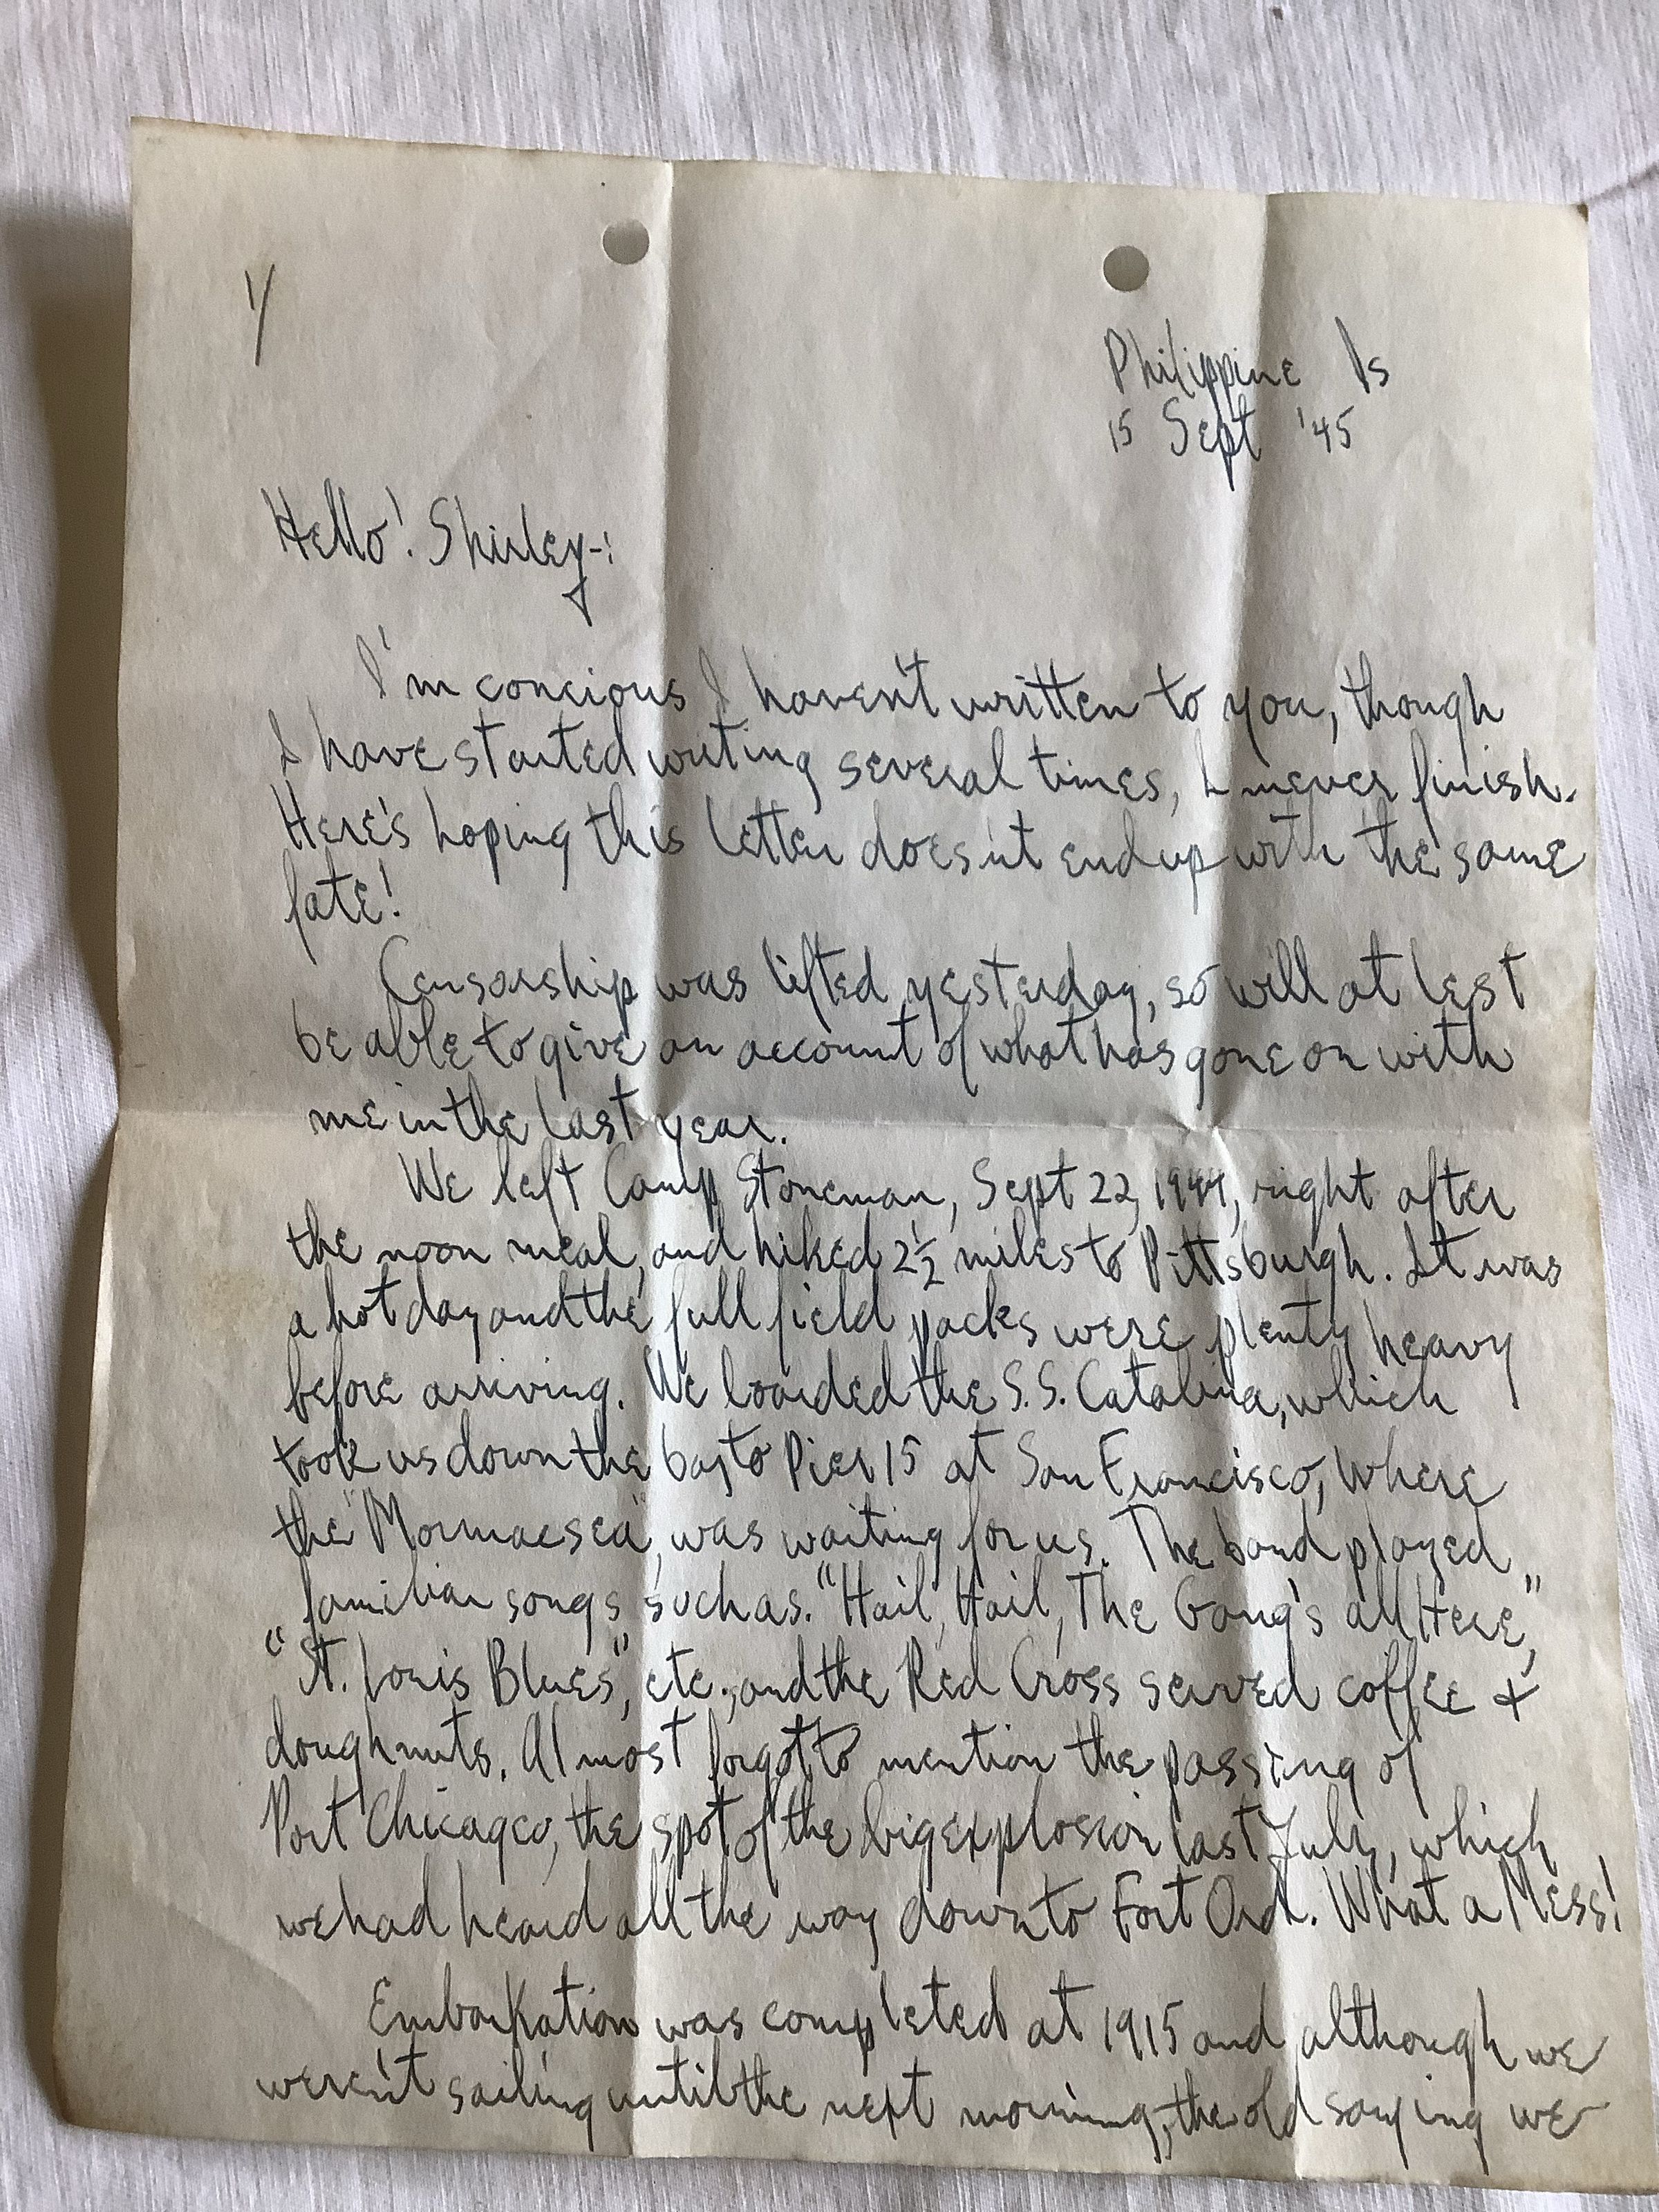 1/
Philippine Is
15 Sept '45
Hello! Shirley-:
I'm concious I haven't written to you, though
I have started writing several times, I never finish.
Here's hoping this letter doesn't end up with the same
fate!
Censorship was lifted yesterday, so will at lest
be able to give an account of what has gone on with
me in the last year.
We left Camp Stoneman, Sept 22, 1944, right after
the noon meal, and hiked 2½ miles to Pittsburgh. It was
a hot day and the full field packs were plenty heavy
before arriving. We loaded the S.S. Catalina, which
took us down the bay to Pier 15 at San Francisco, where
the "Mormacsea", was waiting for us. The band played
familiar songs such as. "Hail, Hail, The Gang's all Here,"
"St. Louis Blues", etc., and the Red Cross served coffee +
doughnuts. Almost forgot to mention the passing of
Port Chicagco, the spot of the big explosion last July, which
we had heard all the way down to Fort Ord. What a Mess!
Embarkation was completed at 1915 and although we
weren't sailing until the next morning, the old saying we